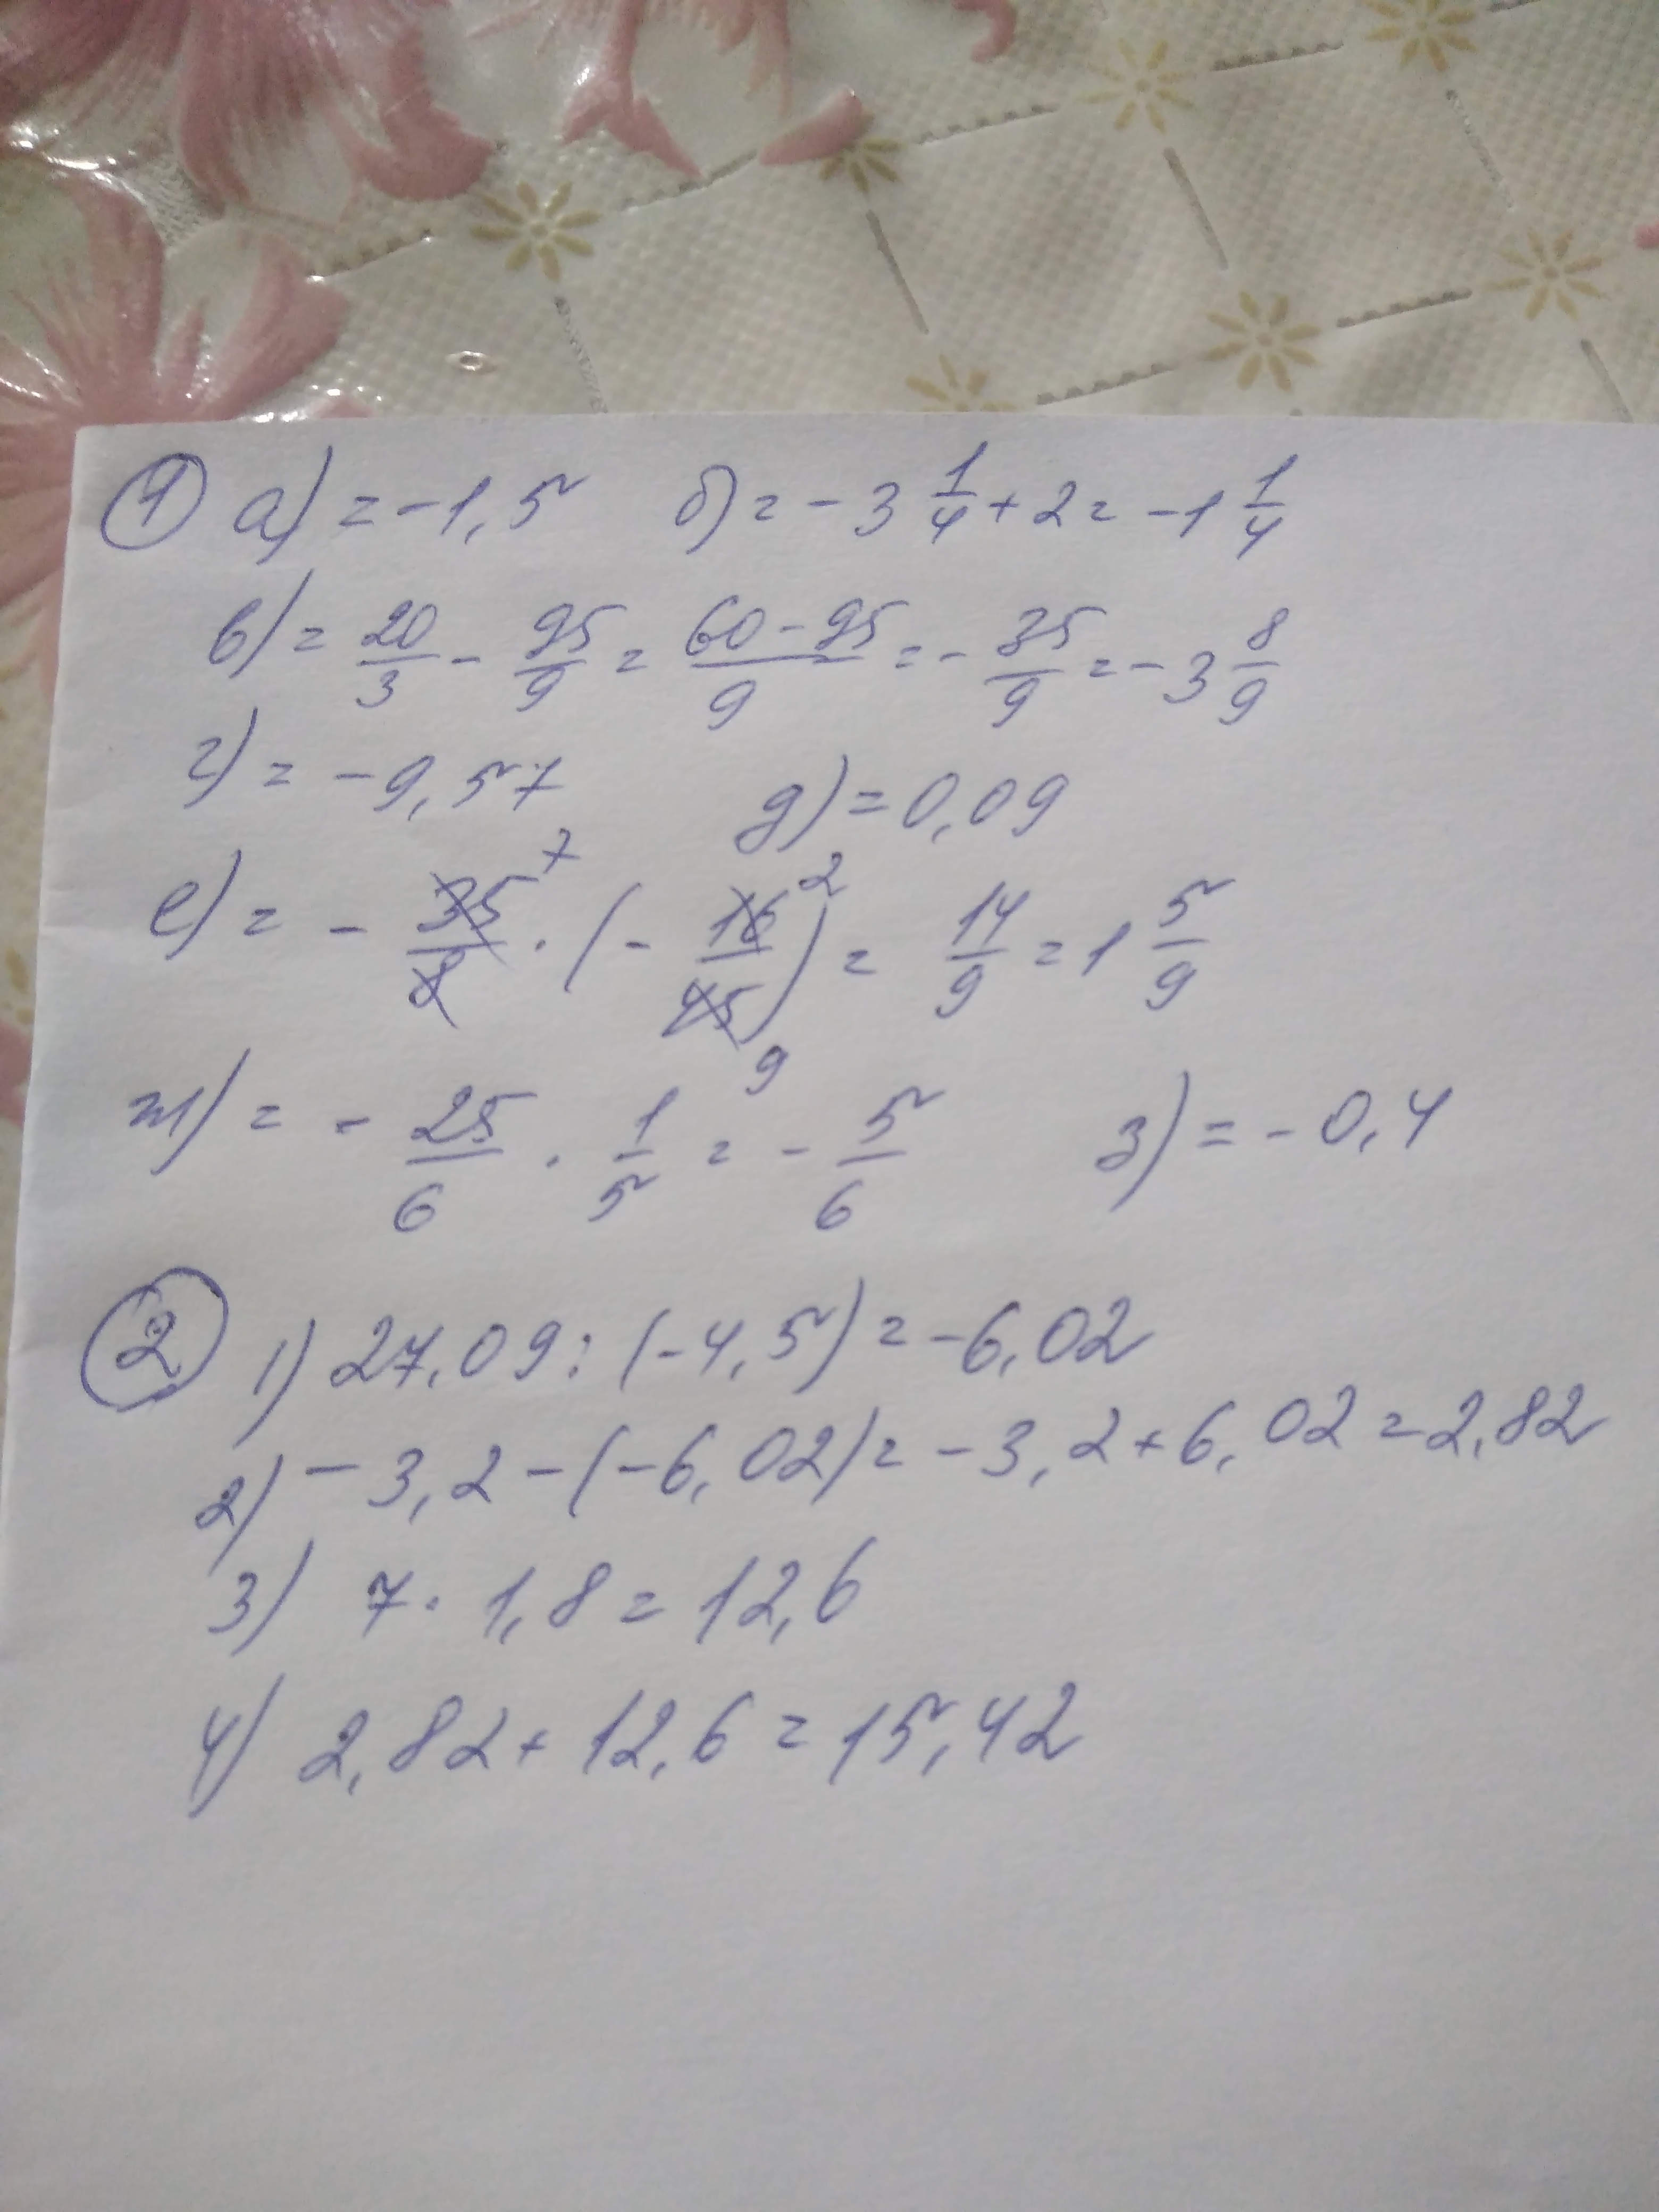 ① а) = -1,5 б) = -3 1/4 + 2 = -1 1/4
в) = 20/3 - 95/9 = (60-95)/9 = - 35/9 = -3 8/9
г) = -9,57 д) = 0,09
е) = - 35/8 7 · (- 16/45) 2 9 = 14/9 = 1 5/9
ж) = - 25/6 · 1/5 = - 5/6 з) = -0,4
② 1) 27,09 : (-4,5) = -6,02
2) -3,2 - (-6,02) = -3,2 + 6,02 = 2,82
3) 7 · 1,8 = 12,6
4) 2,82 + 12,6 = 15,42